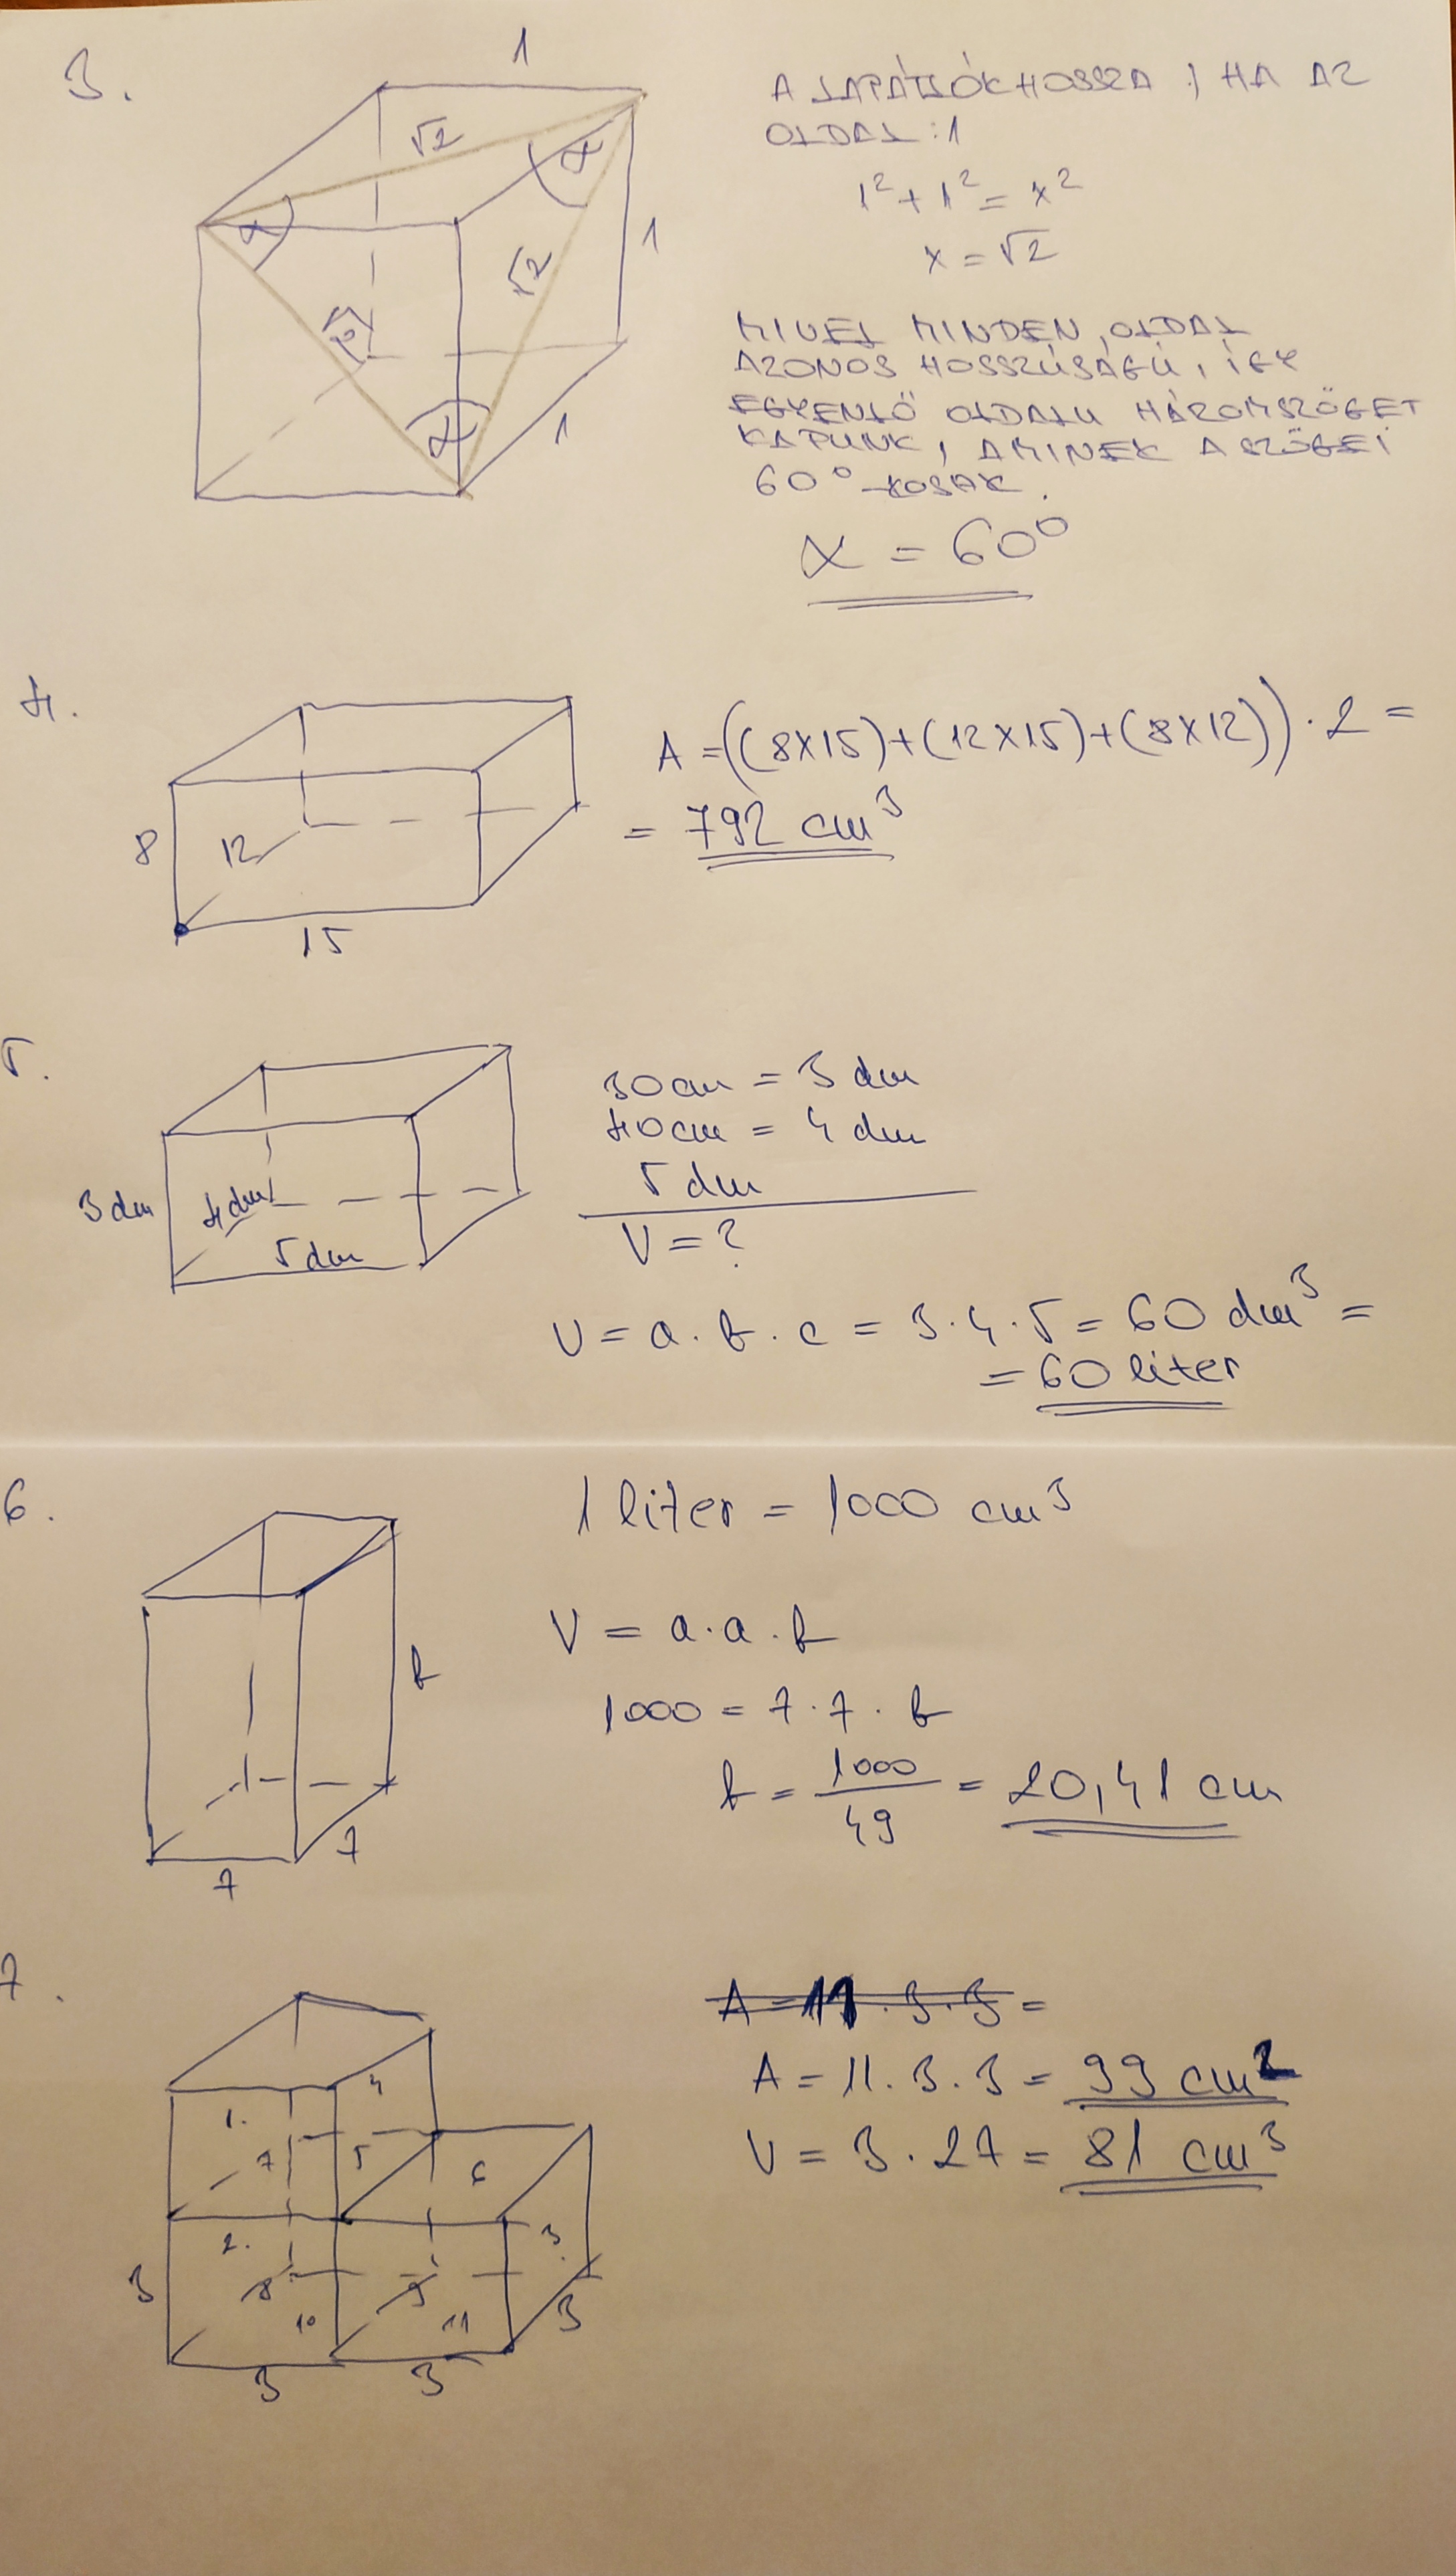 3.
1
√2
α
α
√2
1
√2
α
1
A LAPÁTLÓK HOSSZA, HA AZ
OLDAL: 1
1² + 1² = x²
x = √2
MIVEL MINDEN OLDAL
AZONOS HOSSZÚSÁGÚ, ÍGY
EGYENLŐ OLDALU HÁROMSZÖGET
KAPUNK, AMINEK A SZÖGEI
60°-KOSAK.
α = 60°
4.
8
12
15
A = ((8x15)+(12x15)+(8x12)) · 2 =
= 792 cm³
5.
3 dm
4 dm
5 dm
30 cm = 3 dm
40 cm = 4 dm
5 dm
V = ?
V = a · b · c = 3 · 4 · 5 = 60 dm³ =
= 60 liter
6.
b
7
7
1 liter = 1000 cm³
V = a · a · b
1000 = 7 · 7 · b
b = 1000/49 = 20,41 cm
7.
4
1.
7
5
6
2.
3.
3
8
9
10
11
3
3
3
A = 11 · 3 · 3 =
A = 11 · 3 · 3 = 99 cm²
V = 3 · 27 = 81 cm³